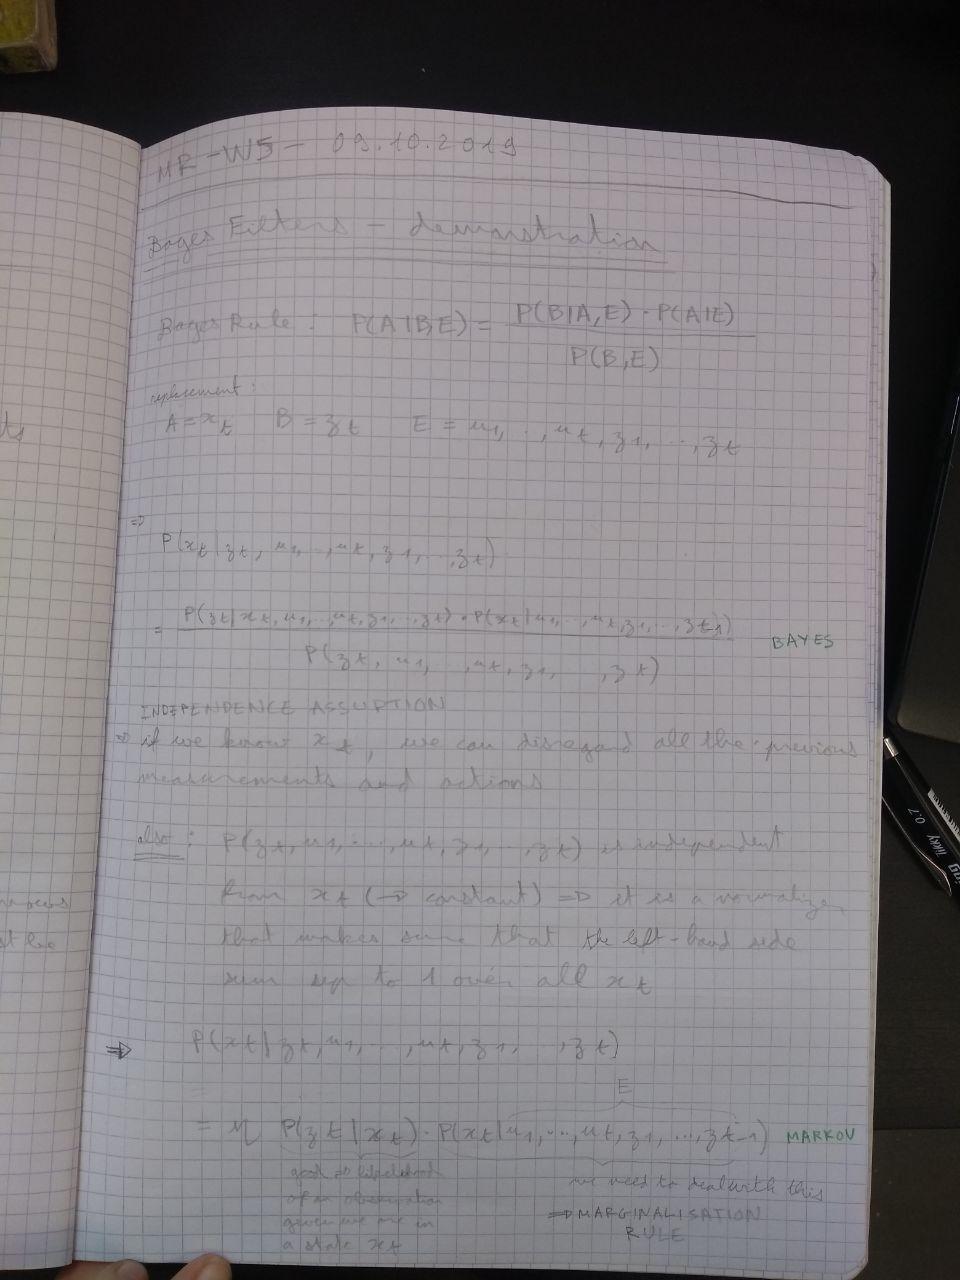 MR-W5- 09.10.2019
Bayes Filters - demonstration
Bayes Rule : P(A|B,E) = P(B|A,E) · P(A|E)
P(B,E)
replacement :
A = x_t B = z_t E = u_1, .., u_t, z_1, ..., z_t
=>
P(x_t | z_t, u_1, .., u_t, z_1, .., z_t)
= P(z_t | x_t, u_1, .., u_t, z_1, .., z_t) · P(x_t | u_1, .., u_t, z_1, .., z_t-1)
P(z_t, u_1, ..., u_t, z_1, ..., z_t) BAYES
INDEPENDENCE ASSUPTION
=> if we know x_t, we can disregard all the previous
measurements and actions
also : P(z_t, u_1, ..., u_t, z_1, .., z_t) is independent
from x_t (-> constant) => it is a normalizer
that makes sure that the left-hand side
sum up to 1 over all x_t
=> P(x_t | z_t, u_1, ..., u_t, z_1, .., z_t)
E
= η P(z_t | x_t) · P(x_t | u_1, ..., u_t, z_1, ..., z_t-1) MARKOV
good => likelihood
of an observation
given we are in
a state x_t
we need to deal with this
=> MARGINALISATION
RULE
tikky 0.7